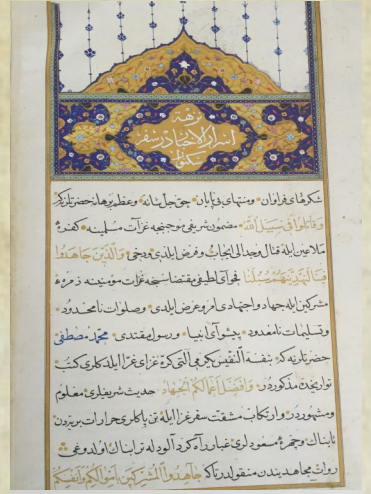 نزهة
اسرار الاخبار در سفر
سكتوار
شكرهای فراوان ومنتهای بی پایان حق جل شانه وعظم برهانه حضرتلرنه كه
وقاتلوا فی سبیل الله مضمون شریفی موجبنجه غزات مسلمینه كفره
ملاعین ایله قتال وجدالی ایجاب وفرض ایلدی ودخی والذین جاهدوا
فینا لنهدینهم سبلنا فحوای لطیفی مقتضاسنجه غزات مومنینه زمره
مشركین ایله جهاد واجتهادی امر وعرض ایلدی وصلوات نامحدود
وتسلیمات نامعدود پیشوای انبیا ورسول مقتدی محمد مصطفی
حضرتلرینه كه النفیس یكرمی التی كره غزای غرا ایلدكلری كتب
تواریخده مذكوردر وافضل اعمالكم الجهاد حدیث شریفلری معلوم
ومشهوردر وارتكاب مشقت سفر غزا ایله تن پاكلری حرارات
تابناك وچهره مسعودلری غبار راه كرد آلود له ترابناك اولدوغی
روات مجاهدیندن منقولدر تاكه جاهدوا المشركین باموالكم وانفسكم